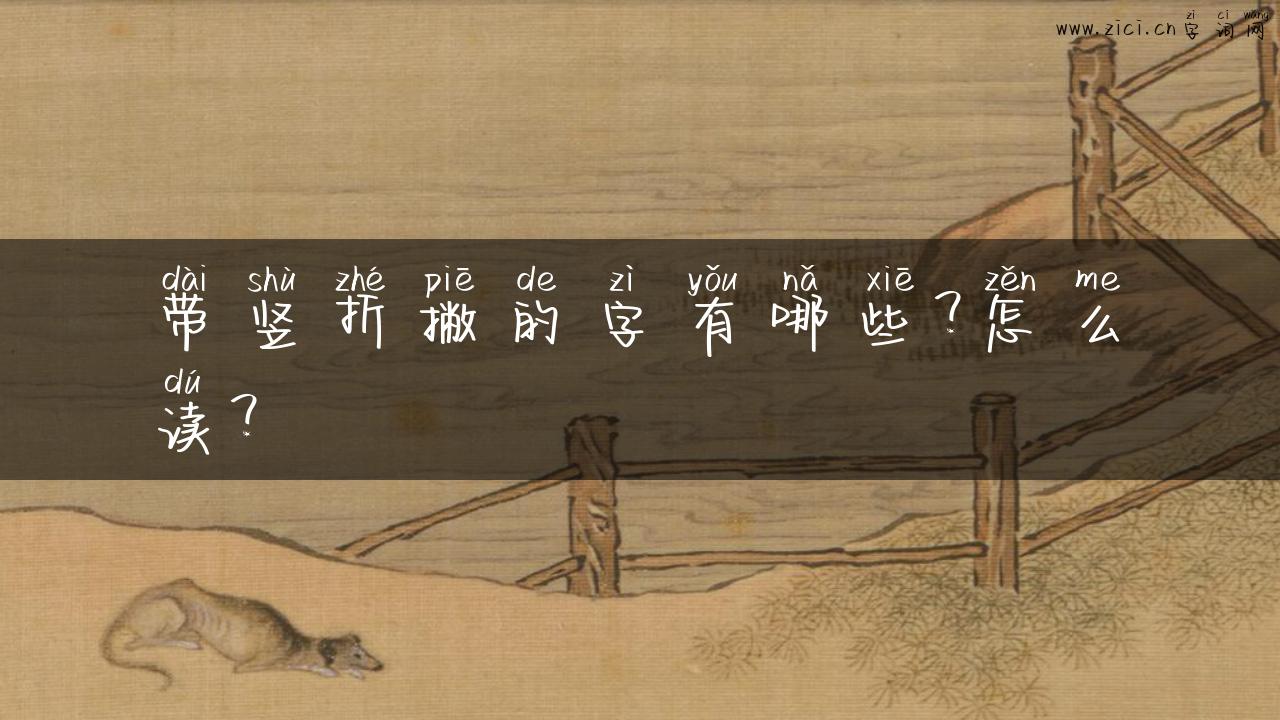 zi ci wang
www.zici.cn字词网
dài shù zhé piē de zì yǒu nǎ xiē zěn me
带竖折撇的字有哪些？怎么
dú
读？